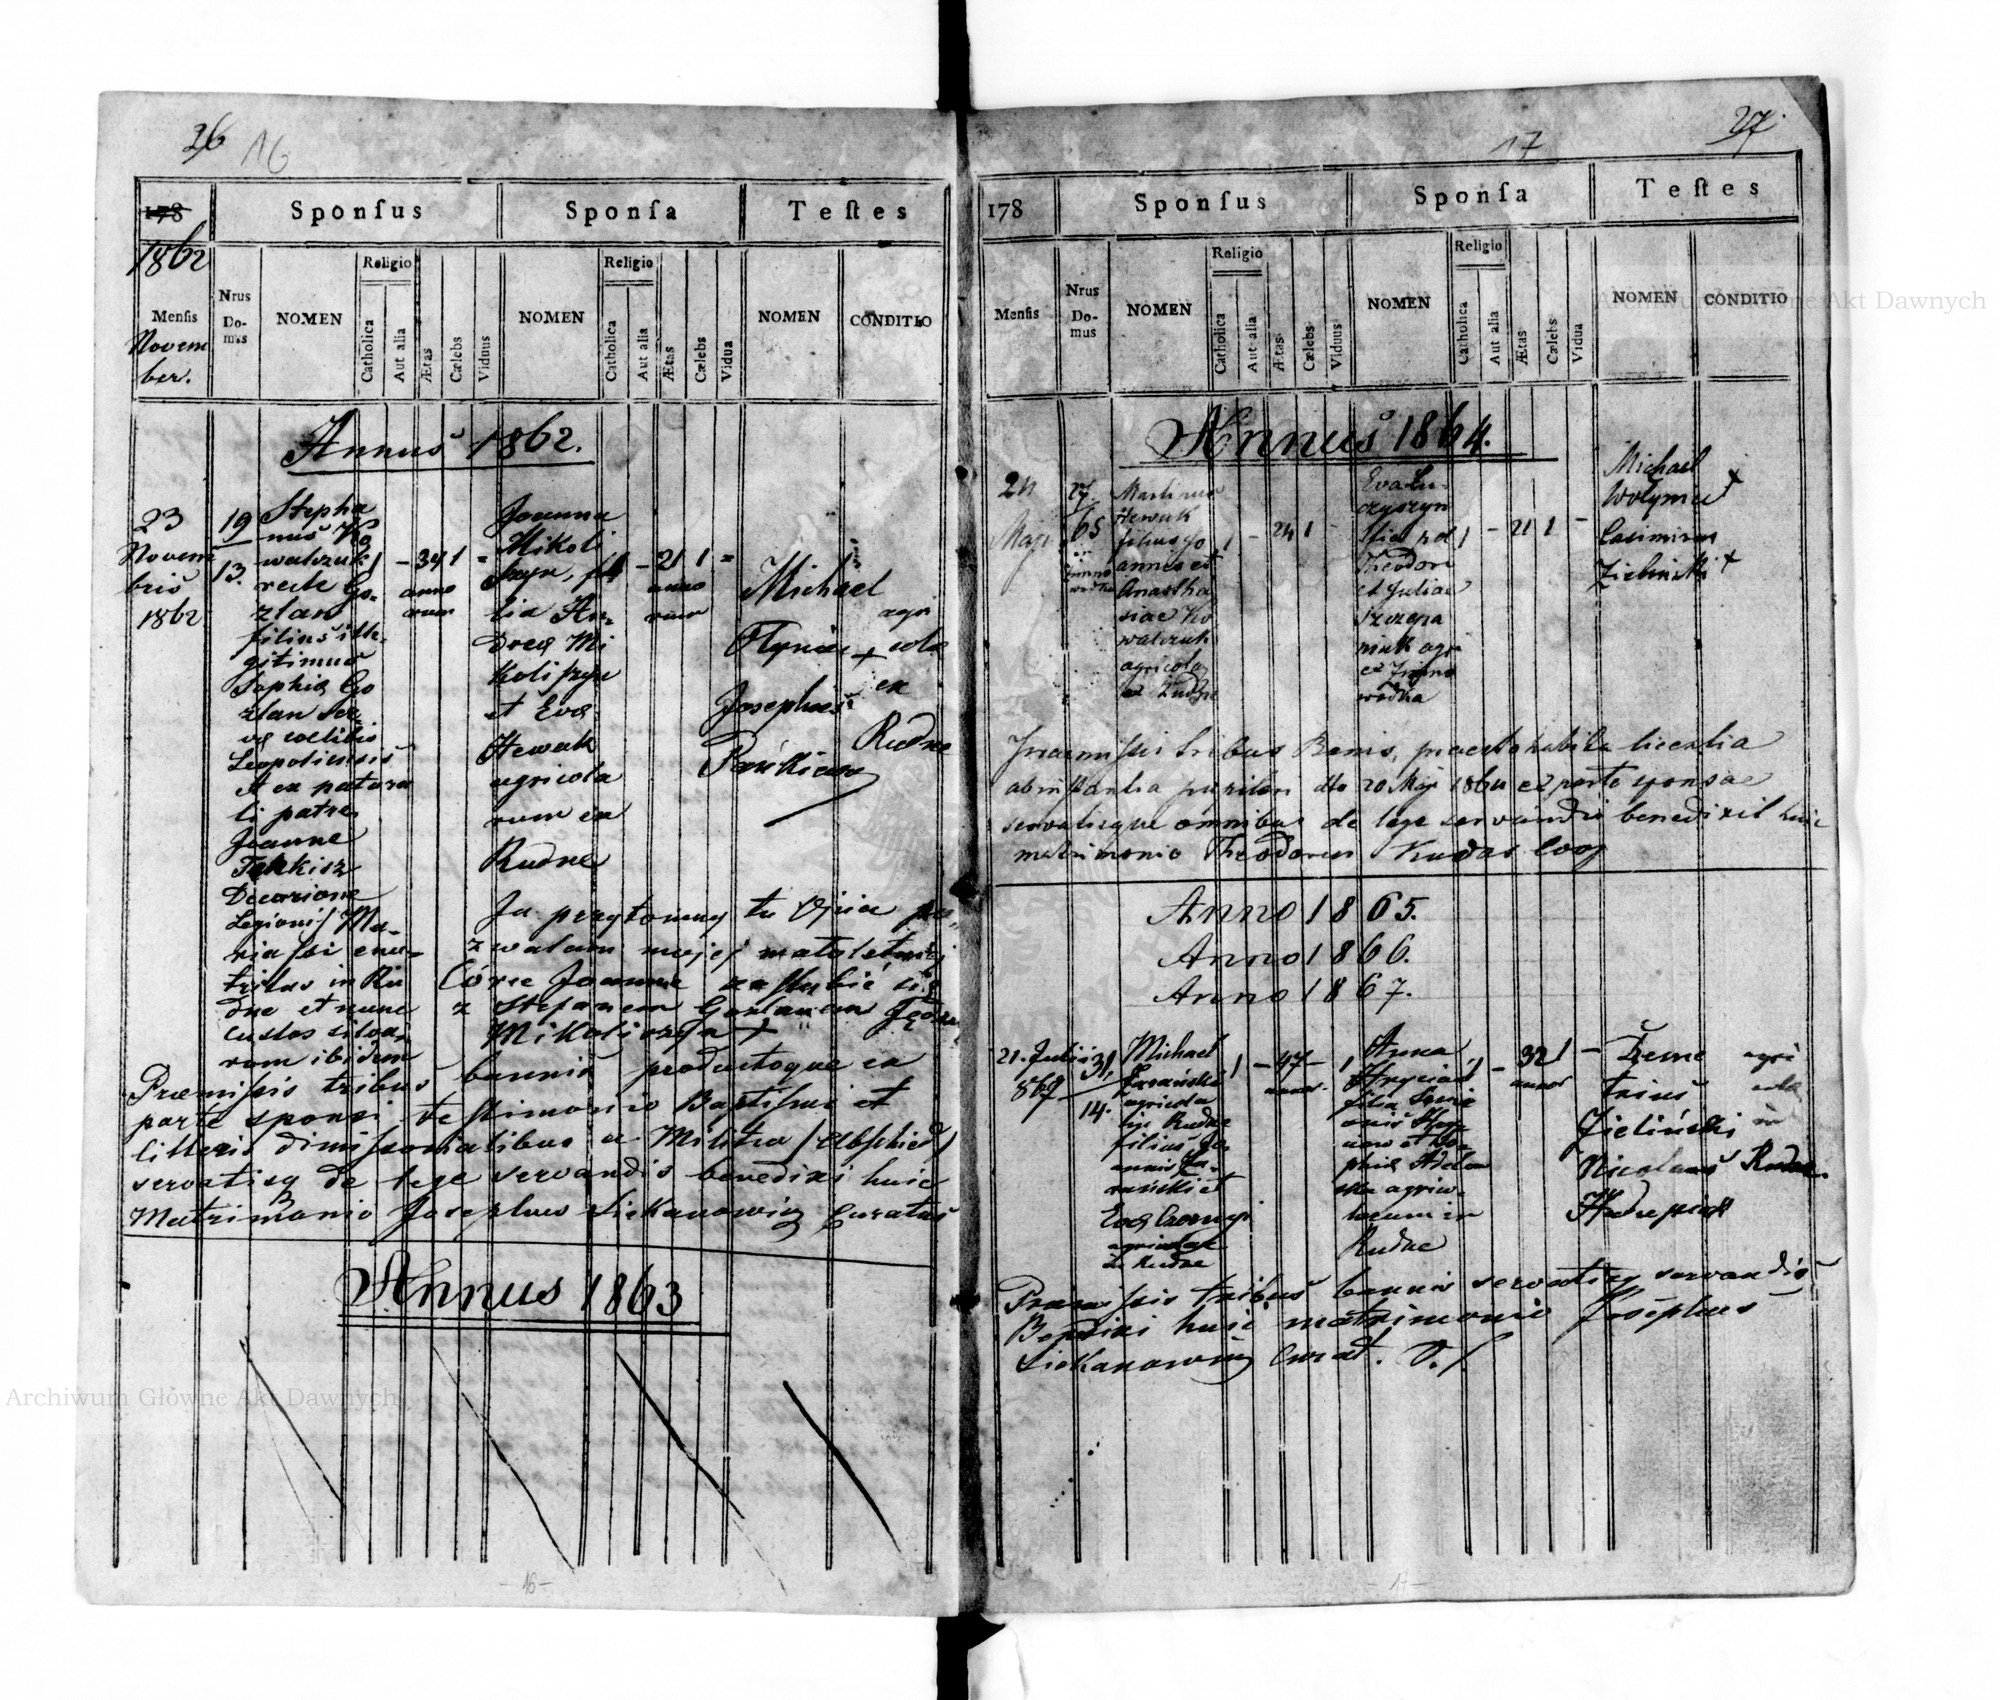 26 16
178
Sponſus
Sponſa
Teſtes
1862
Religio
Religio
Menſis
Nrus Do-mus
NOMEN
Catholica
Aut alia
Ætas
Cælebs
Viduus
NOMEN
Catholica
Aut alia
Ætas
Cælebs
Vidua
NOMEN
CONDITIO
Novem
ber.
Annus 1862.
23
Novem
bris
1862
19
13.
Stepha
nus Ko
walczuk
recte Go-
zlan
filius ille-
gitimus
Sophia Go
zlan ser-
va coelibis
Leopoliensis
et ex natura
li patre
Joanne
Decurione
Legionis Ma-
riassi enu-
tritus in Ru
dne et nunc
custos silva-
rum ibidem
1 - 34 1 =
anno
rum
Joanna
Mikoli
szyn, fi
lia An-
drea Mi
koliszyn
et Eva
Hewak
agricola
rum ex
Rudne
1 - 21 1 =
anno
rum
Michael
Hryniw +
Josephus
agri
cola
ex
Rudne
Ja przytomny tu Ojciec po-
zwalam mojej małoletniej
Córce Joannie zaślubić się
z Stefanem Gozlanem Jędrzej
Mikoliszyn +
Præmissis tribus bannis productoque ex
parte sponsi testimonio Baptismi et
litteris dimissorialibus a Militia /Abschied/
servatisq de lege servandis benedixi huic
Matrimonio Josephus Siekanowicz Curatus
Annus 1863
- 16 -
17
27.
178
Sponſus
Sponſa
Teſtes
Religio
Religio
Menſis
Nrus Do-mus
NOMEN
Catholica
Aut alia
Ætas
Cælebs
Viduus
NOMEN
Catholica
Aut alia
Ætas
Cælebs
Vidua
NOMEN
CONDITIO
Annus 1864.
24
Maji
27.
65
Zimno
wodka
Martinus
Hewak
filius Jo
annis et
Anastha
siae Ko
walczuk
agricola
ex Rudne
1 - 24 1
Eva Lu-
czyszyn
filia p d
Theodori
et Juliae
Szczepa
niuk agri
ex Zimno
wodka
1 - 21 1 -
Michael
Wołyniec +
Casimirus
Zieliński +
Praemissis tribus Banis, praesto habita licentia
ab instantia pupilari dto 20 Maji 1864 ex parte sponsae
servatisque omnibus de lege servandis benedixit huic
matrimonio Theodorus Kudas Coop
Anno 1865.
Anno 1866.
Anno 1867.
21. Julii
867
31.
14.
Michael
agricola
in Rudne
filius Jo-
annis
et
Eva
agricolae
in Rudne
1 - 47 - 1
annor.
Anna
Hryciów
filia
phia
agrico-
larum in
Rudne
1 - 32 1 -
annor
Deme
trius
Zieliński
Nicolaus
agri
cola
in
Rudne.
Praemissis tribus bannis servatisq servandis
Benedixi huic matrimonio Josephus
Siekanowicz Curat.
Archiwum Główne Akt Dawnych
Archiwum Główne Akt Dawnych